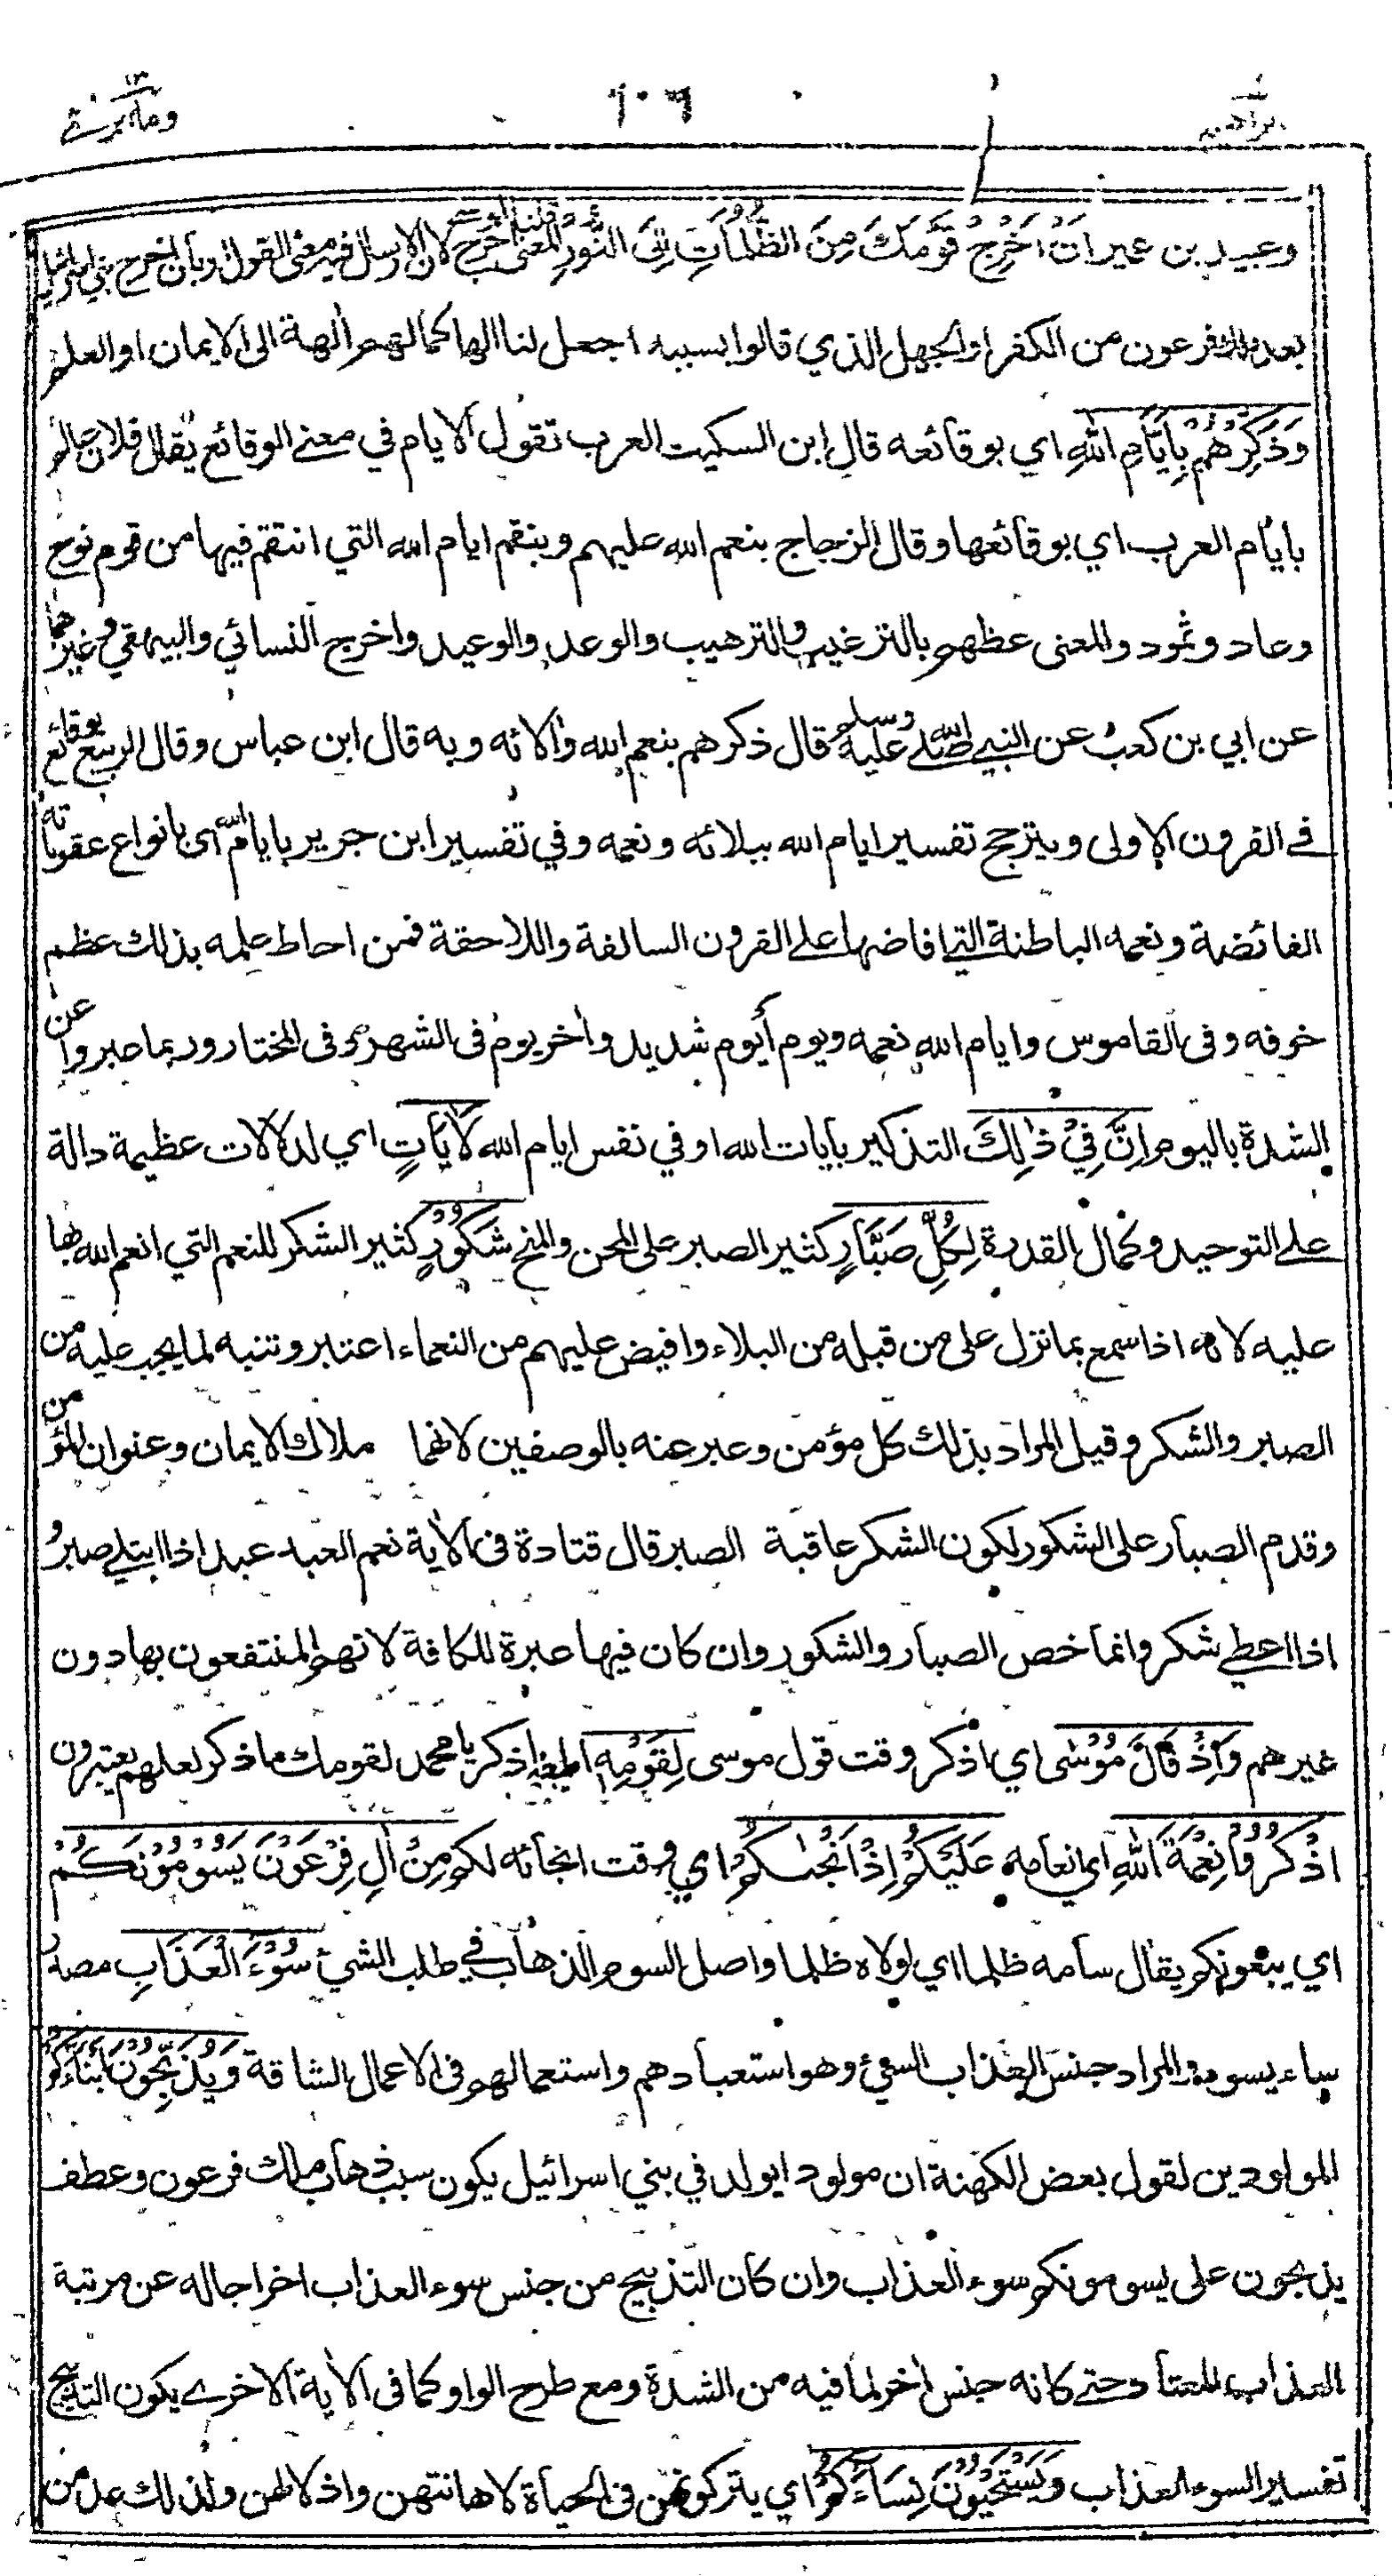 ابراهيم ١٠٦ وما ابرئ ١٣
وعبيد بن عمير اَنْ اَخْرِجْ قَوْمَكَ مِنَ الظُّلُمَاتِ اِلَى النُّوْرِ المعنى قلنا له اخرج لان الارسال فيه معنى القول او بان اخرج بني اسرائيل
بعد ملك فرعون من الكفر او الجهل الذي قالوا بسببه اجعل لنا الها كما لهم الهة الى الايمان او العلم
وَذَكِّرْهُمْ بِاَيَّامِ اللهِ اي بوقائعه قال ابن السكيت العرب تقول الايام في معنے الوقائع يقال فلان عالم
بايام العرب اي بوقائعها وقال الزجاج بنعم الله عليهم وبنقم ايام الله التي انتقم فيها من قوم نوح
وعاد وثمود والمعنى عظهم بالترغيب والترهيب والوعد والوعيد واخرج النسائي والبيهقي وغيرهما
عن ابي بن كعب عن النبي صلى الله عليه وسلم قال ذكرهم بنعم الله وآلائه وبه قال ابن عباس وقال الربيع بوقائع
في القرون الاولى ويترجح تفسير ايام الله ببلائه ونعمه وفي تفسير ابن جرير بايام الله اى بانواع عقوباته
الفائضة ونعمه الباطنة التي افاضها على القرون السالفة واللاحقة فمن احاط علمه بذلك عظم
خوفه وفى القاموس وايام الله نعمه ويوم أيوم شديد وآخر يوم فى الشهر وفى المختار وربما عبروا عن
الشدة باليوم اِنَّ فِيْ ذٰلِكَ التذكير بآيات الله او في نفس ايام الله لَاٰيَاتٍ اي لدلالات عظيمة دالة
على التوحيد وكمال القدرة لِكُلِّ صَبَّارٍ كثير الصبر على المحن والمنح شَكُوْرٍ كثير الشكر للنعم التي انعم الله بها
عليه لانه اذا سمع بما نزل على من قبله من البلاء وافيض عليهم من النعماء اعتبر وتنبه لما يجب عليه من
الصبر والشكر وقيل المراد بذلك كل مؤمن وعبر عنه بالوصفين لانهما ملاك الايمان وعنوان المؤمن
وقدم الصبار على الشكور لكون الشكر عاقبة الصبر قال قتادة فى الآية نعم العبد عبد اذا ابتلي صبر و
اذا اعطي شكر وانما خص الصبار والشكور وان كان فيها عبرة للكافة لانهم المنتفعون بها دون
غيرهم وَاِذْ قَالَ مُوْسٰى اي اذكر وقت قول موسى لِقَوْمِهِ المعنى اذكر يا محمد لقومك ما ذكر لعلهم يعتبرون
اذْكُرُوْا نِعْمَةَ اللهِ اي انعامه عَلَيْكُمْ اِذْ اَنْجٰىكُمْ اي وقت انجائه لكم مِنْ اٰلِ فِرْعَوْنَ يَسُوْمُوْنَكُمْ
اي يبغونكم يقال سامه ظلما اي اولاه ظلما واصل السوم الذهاب في طلب الشيئ سُوْءَ الْعَذَابِ مصدر
ساء يسوء والمراد جنس العذاب السيئ وهو استعبادهم واستعمالهم فى الاعمال الشاقة وَيُذَبِّحُوْنَ اَبْنَاءَكُمْ
المولودين لقول بعض الكهنة ان مولودا يولد في بني اسرائيل يكون سبب ذهاب ملك فرعون وعطف
يذبحون على يسومونكم سوء العذاب وان كان التذبيح من جنس سوء العذاب اخراجا له عن مرتبة
العذاب المعتاد حتى كانه جنس آخر لما فيه من الشدة ومع طرح الواو كما فى الآية الاخرے يكون التذبيح
تفسيرا لسوء العذاب وَيَسْتَحْيُوْنَ نِسَاءَكُمْ اي يتركونهن فى الحياة لاهانتهن واذلالهن ولذلك عد من